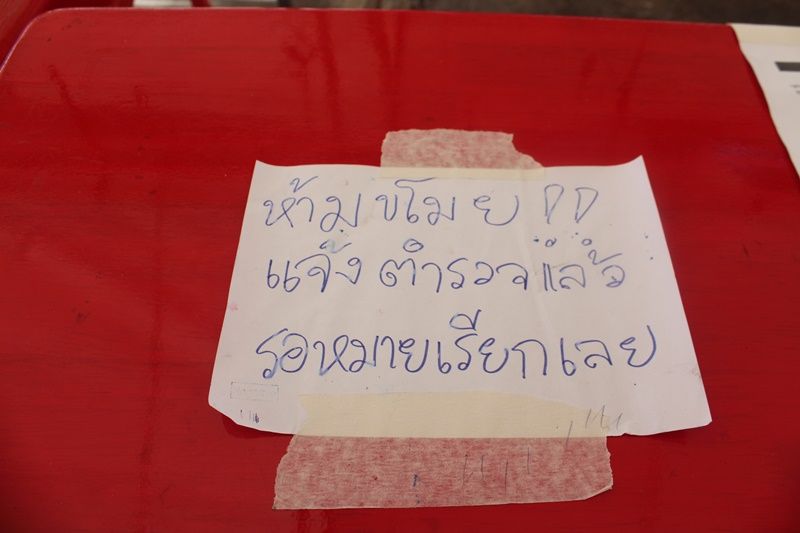 ห้ามขโมย !!
แจ้งตำรวจแล้ว
รอหมายเรียกเลย